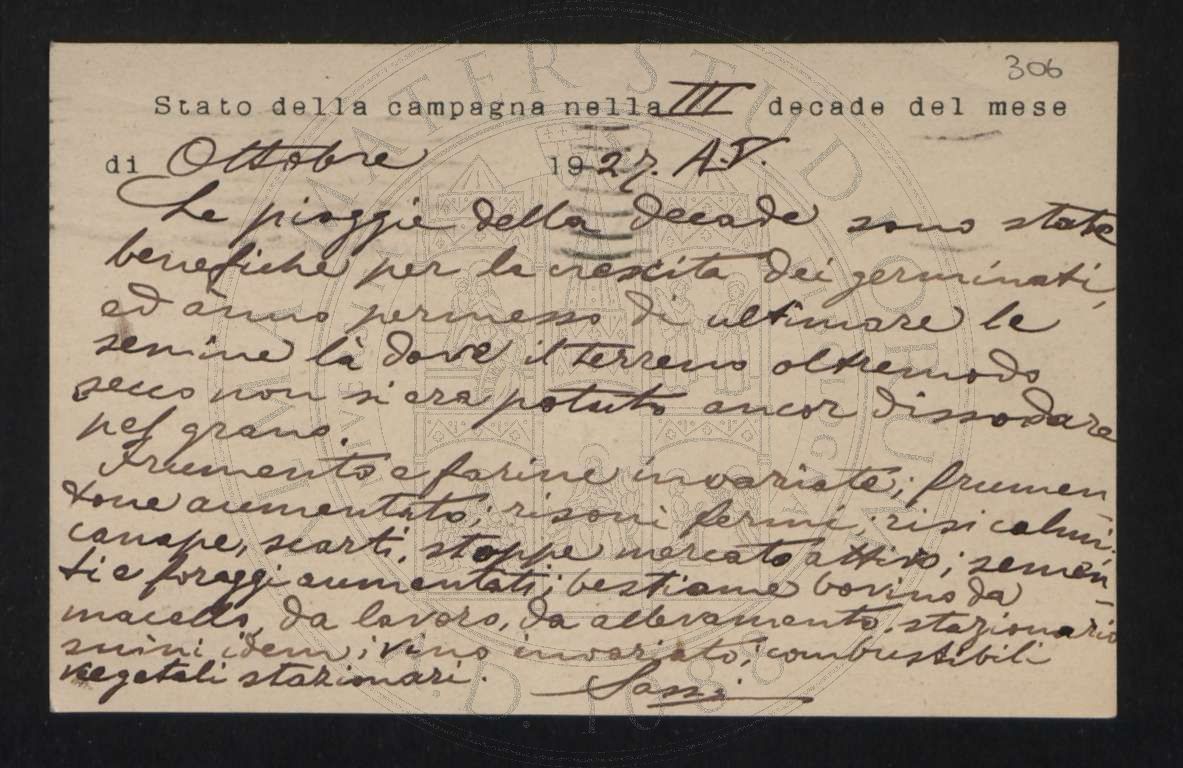 306
Stato della campagna nella III decade del mese
di Ottobre 1927. A.V.
Le pioggie della decade sono state
benefiche per la crescita dei germinati,
ed ànno permesso di ultimare le
semine là dove il terreno oltremodo
secco non si era potuto ancor dissodare
pel grano.
Frumento e farine invariate; frumen
tone aumentato; risoni fermi; risi calmi;
canape, scarti, stoppe mercato attivo; semen
ti e foraggi aumentati; bestiame bovino da
macello, da lavoro, da allevamento, stazionario
suini idem; vino invariato; combustibili
vegetali stazionari. Sassi
ALMA MATER STUDIORUM
A.D. 1088